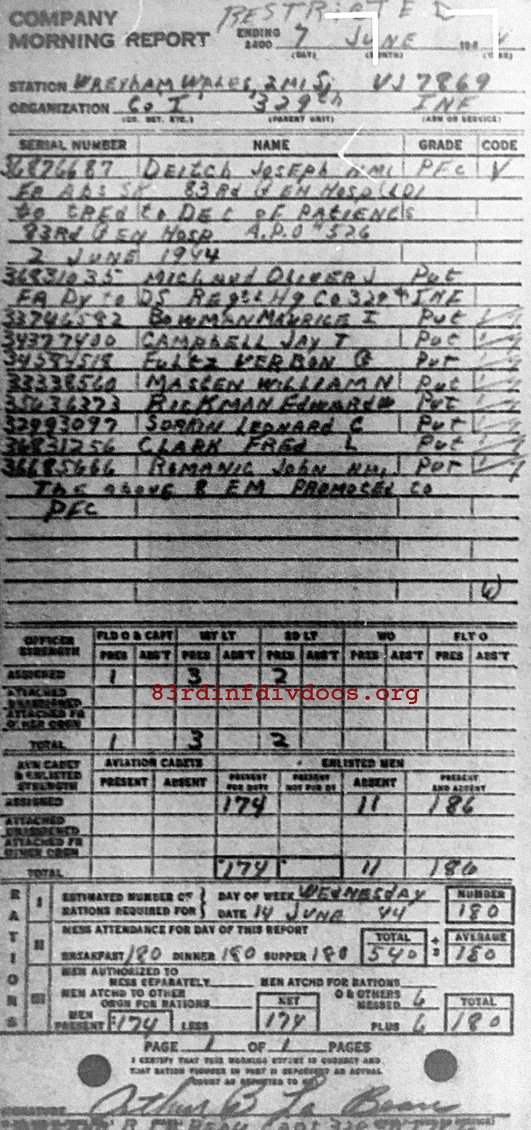 RESTRICTED
COMPANY
MORNING REPORT
ENDING 2400 7 JUNE 194
(DAY) (MONTH) (YEAR)
STATION WREXHAM WALES, 2 MI S, VJ 7869
ORGANIZATION Co I 329th INF
(CO. DET. ETC.) (PARENT UNIT) (ARM OR SERVICE)
SERIAL NUMBER NAME GRADE CODE
36876687 DEITCH JOSEPH NMI PFC V
FR ABS SK 83RD G EN HOSP (LD)
to TRFD to DET OF PATIENTS
83RD G EN HOSP A.P.O #526
2 JUNE 1944
36831035 MICHAUD OLIVER J Pvt
FR DY to DS REGTL HQ CO 329th INF
33746582 BOWMAN MAURICE I Pvt
34377400 CAMPBELL JAY T Pvt
34584518 FULTZ VERBON G Pvt
33338560 MASTEN WILLIAM N Pvt
35636373 RICKMAN EDWARD W Pvt
32993097 SORKIN LEONARD C Pvt
36831256 CLARK FRED L Pvt
36685666 ROMANIC JOHN NMI Pvt
THE ABOVE 8 EM PROMOTED to
PFC
OFFICER STRENGTH FLD O & CAPT 1ST LT 2D LT WO FLT O
PRES ABS'T PRES ABS'T PRES ABS'T PRES ABS'T PRES ABS'T
ASSIGNED 1 3 2
ATTACHED UNASSIGNED
ATTACHED FR OTHER ORGN
TOTAL 1 3 2
83rdinfdivdocs.org
AVN CADET & ENLISTED STRENGTH AVIATION CADETS ENLISTED MEN
PRESENT ABSENT PRESENT FOR DUTY PRESENT NOT FOR DY ABSENT PRESENT AND ABSENT
ASSIGNED 174 11 186
ATTACHED UNASSIGNED
ATTACHED FR OTHER ORGN
TOTAL 174 11 186
RATIONS
I ESTIMATED NUMBER OF RATIONS REQUIRED FOR DAY OF WEEK WEDNESDAY NUMBER
DATE 14 JUNE 44 180
II MESS ATTENDANCE FOR DAY OF THIS REPORT TOTAL ÷ 3 AVERAGE
BREAKFAST 180 DINNER 180 SUPPER 180 540 180
III MEN AUTHORIZED TO MESS SEPARATELY MEN ATCHD FOR RATIONS
MEN ATCHD TO OTHER ORGN FOR RATIONS NET O & OTHERS MESSED 6 TOTAL
MEN PRESENT 174 LESS 174 PLUS 6 180
PAGE 1 OF 1 PAGES
I CERTIFY THAT THIS MORNING REPORT IS CORRECT AND
THAT RATION FIGURES IN PART II REPRESENT AN ACTUAL
COUNT AS REPORTED TO ME
SIGNATURE Arthur B La Beau